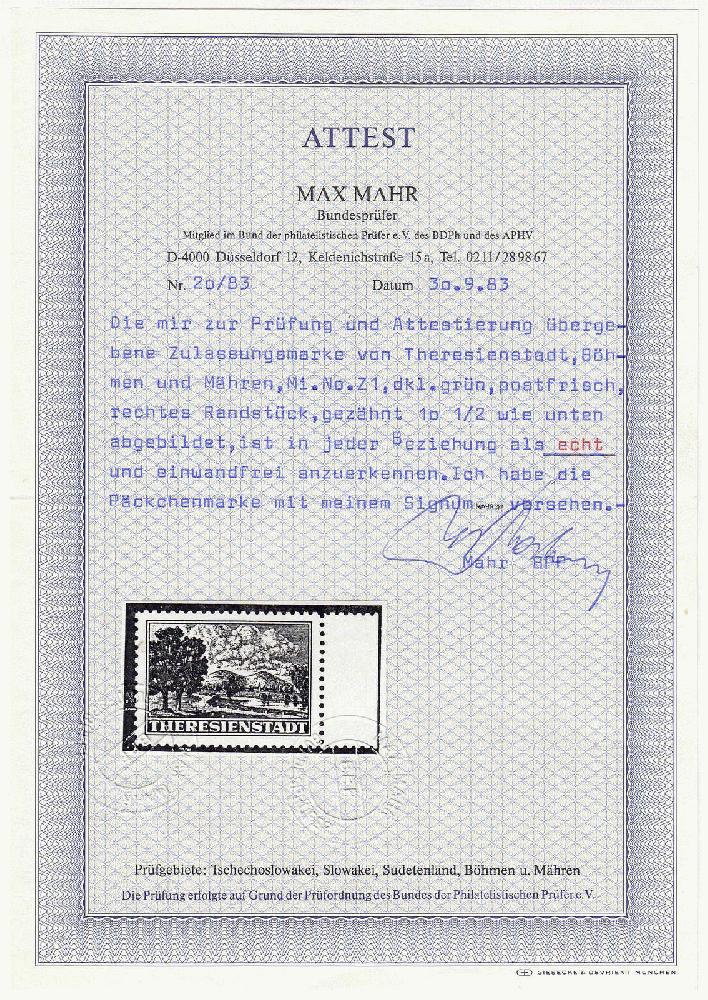 ATTEST
MAX MAHR
Bundesprüfer
Mitglied im Bund der philatelistischen Prüfer e.V. des BDPh und des APHV
D-4000 Düsseldorf 12, Keldenichstraße 15a, Tel. 0211/289867
Nr. 2o/83 Datum 3o.9.83
Die mir zur Prüfung und Attestierung überge-
bene Zulassungsmarke von Theresienstadt,Böh-
men und Mähren,Mi.No.Z1,dkl.grün,postfrisch,
rechtes Randstück,gezähnt 1o 1/2 wie unten
abgebildet,ist in jeder Beziehung als echt
und einwandfrei anzuerkennen.Ich habe die
Päckchenmarke mit meinem Signum versehen.-
Mahr BPP
THERESIENSTADT
Prüfgebiete: Tschechoslowakei, Slowakei, Sudetenland, Böhmen u. Mähren
Die Prüfung erfolgte auf Grund der Prüfordnung des Bundes der Philatelistischen Prüfer e.V.
GIESECKE & DEVRIENT MÜNCHEN